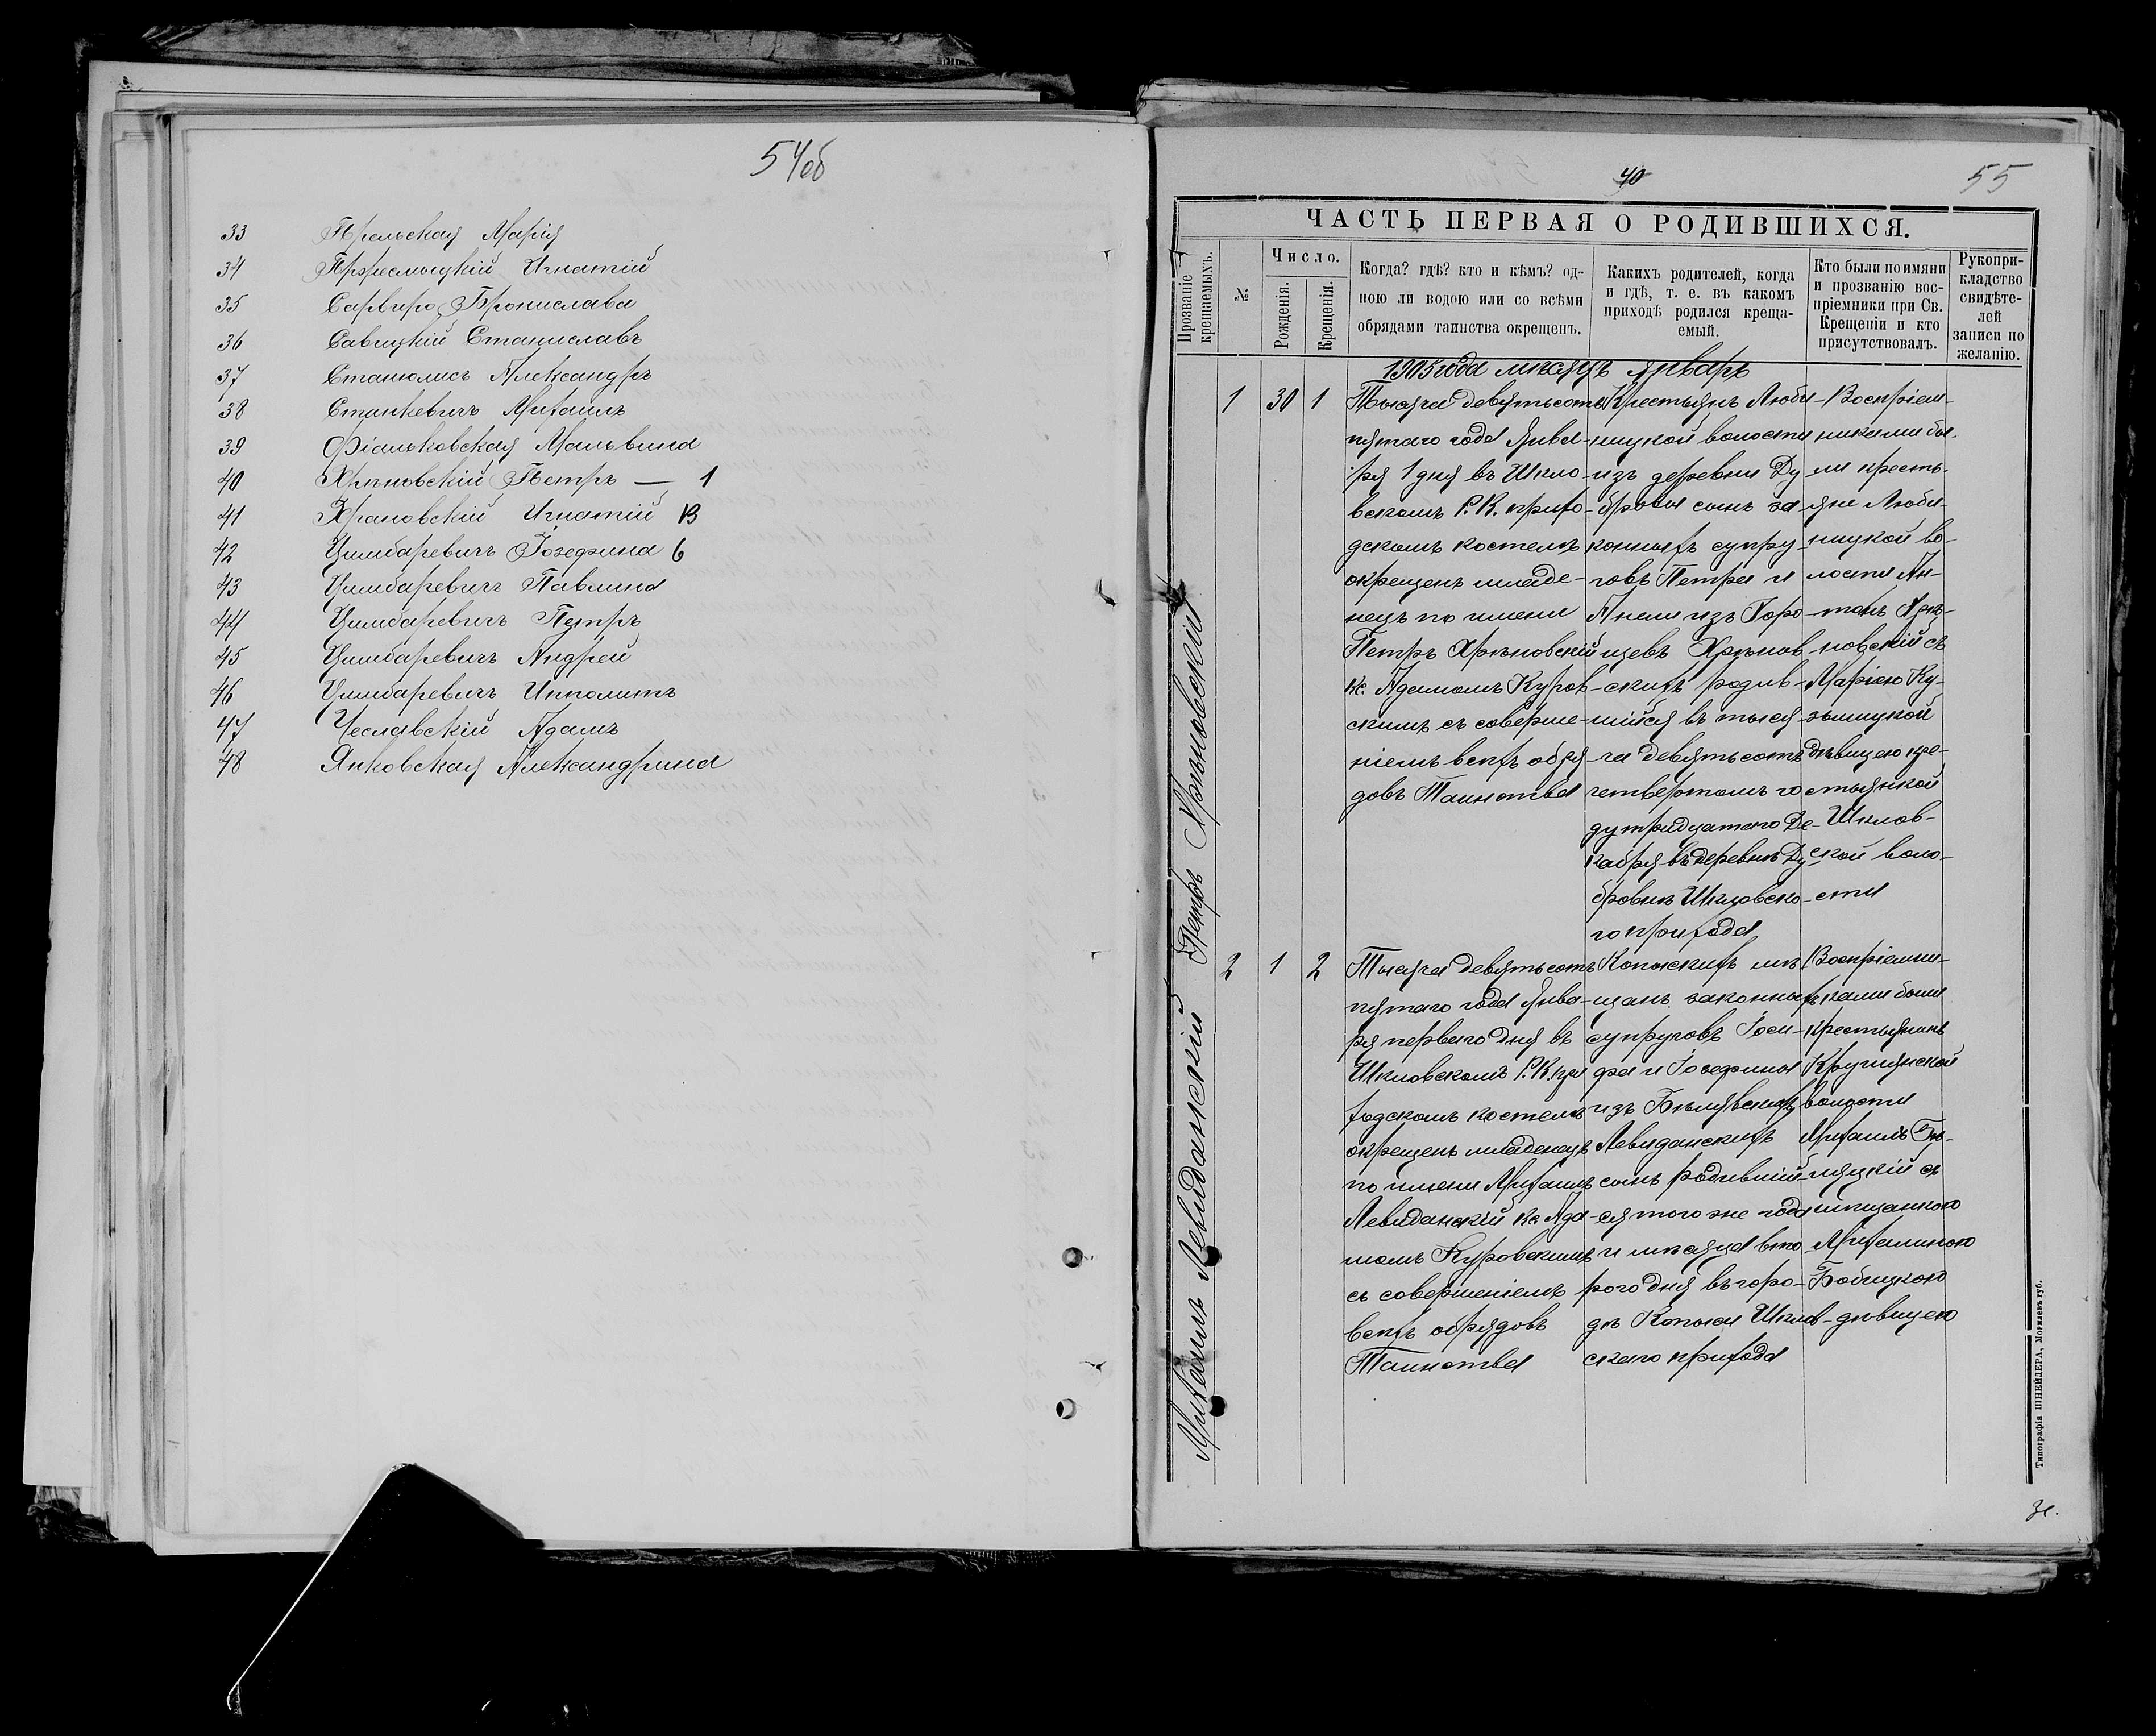 54об
33 Прельская Марія
34 Пржесмыцкій Игнатій
35 Сарвиро Бронислава
36 Савицкій Станиславъ
37 Станюлисъ Александръ
38 Станкевичъ Михаилъ
39 Фіалковская Мальвина
40 Хрѣновскій Петръ — 1
41 Храновскій Игнатій
42 Цимбаревичъ Іозефина 6
43 Цимбаревичъ Павлина
44 Цимбаревичъ Петръ
45 Цимбаревичъ Андрей
46 Цимбаревичъ Ипполитъ
47 Чеславскій Адамъ
48 Янковская Александрина
40
55
ЧАСТЬ ПЕРВАЯ О РОДИВШИХСЯ.
Прозваніе крещаемыхъ.
№
Число.
Рожденія.
Крещенія.
Когда? гдѣ? кто и кѣмъ? од-
ною ли водою или со всѣми
обрядами таинства окрещенъ.
Какихъ родителей, когда
и гдѣ, т. е. въ какомъ
приходѣ родился креща-
емый.
Кто были по имяни
и прозванію вос-
пріемники при Св.
Крещеніи и кто
присутствовалъ.
Рукопри-
кладство
свидѣте-
лей
записи по
желанію.
1905 года мѣсяцъ январь
Петръ Хрѣновскій
1 30 1
Тысяча девятьсотъ
пятаго года Янва-
ря 1 дня въ Шкло-
вскомъ Р. К. прихо-
дскомъ костелѣ
окрещенъ младе-
нецъ по имени
Петръ Хрѣновскій
кс. Адамомъ Куров-
скимъ съ соверше-
ніемъ всѣхъ обря-
довъ Таинства
Крестьянъ Люби-
ницкой волости
изъ деревни Ду
бровы сынъ за
конныхъ супру-
говъ Петра и
Анели изъ Горо-
цевъ Хрѣнов
скихъ родив-
шійся въ тыся-
ча девятьсотъ
четвертомъ го
ду тридцатаго Де-
кабря въ деревнѣ Ду
бровкѣ Шкловска-
го прихода
Воспріем-
никами бы-
ли кресть-
яне Люби-
ницкой во-
лости Ан-
тонъ
новскій съ
Маріею Ку-
дѣвицею кре-
стьянкой
Шклов-
ской воло-
сти
Михаилъ Левиданскій
2 1 2
Тысяча девятьсотъ
пятаго года Янва-
ря перваго дня въ
Шкловскомъ Р. К. при
ходскомъ костелѣ
окрещенъ младенецъ
по имени Михаилъ
Левиданскій кс. Ада-
момъ Куровскимъ
съ совершеніемъ
всѣхъ обрядовъ
Таинства
Копыскихъ мѣ-
щанъ законныхъ
супруговъ Іоси-
фа и Іозефины
изъ Бѣлявскихъ
Левиданскихъ
сынъ родившій-
ся того же года
и мѣсяца вто
рого дня въ горо-
дѣ Копыси Шклов-
скаго прихода
Воспріемни-
ками были
крестьянинъ
Круглянской
волости
Михаилъ
съ
мѣщанкою
Михалиною
Бобицкою
дѣвицею
Типографія ШНЕЙДЕРА, Могилевъ губ.